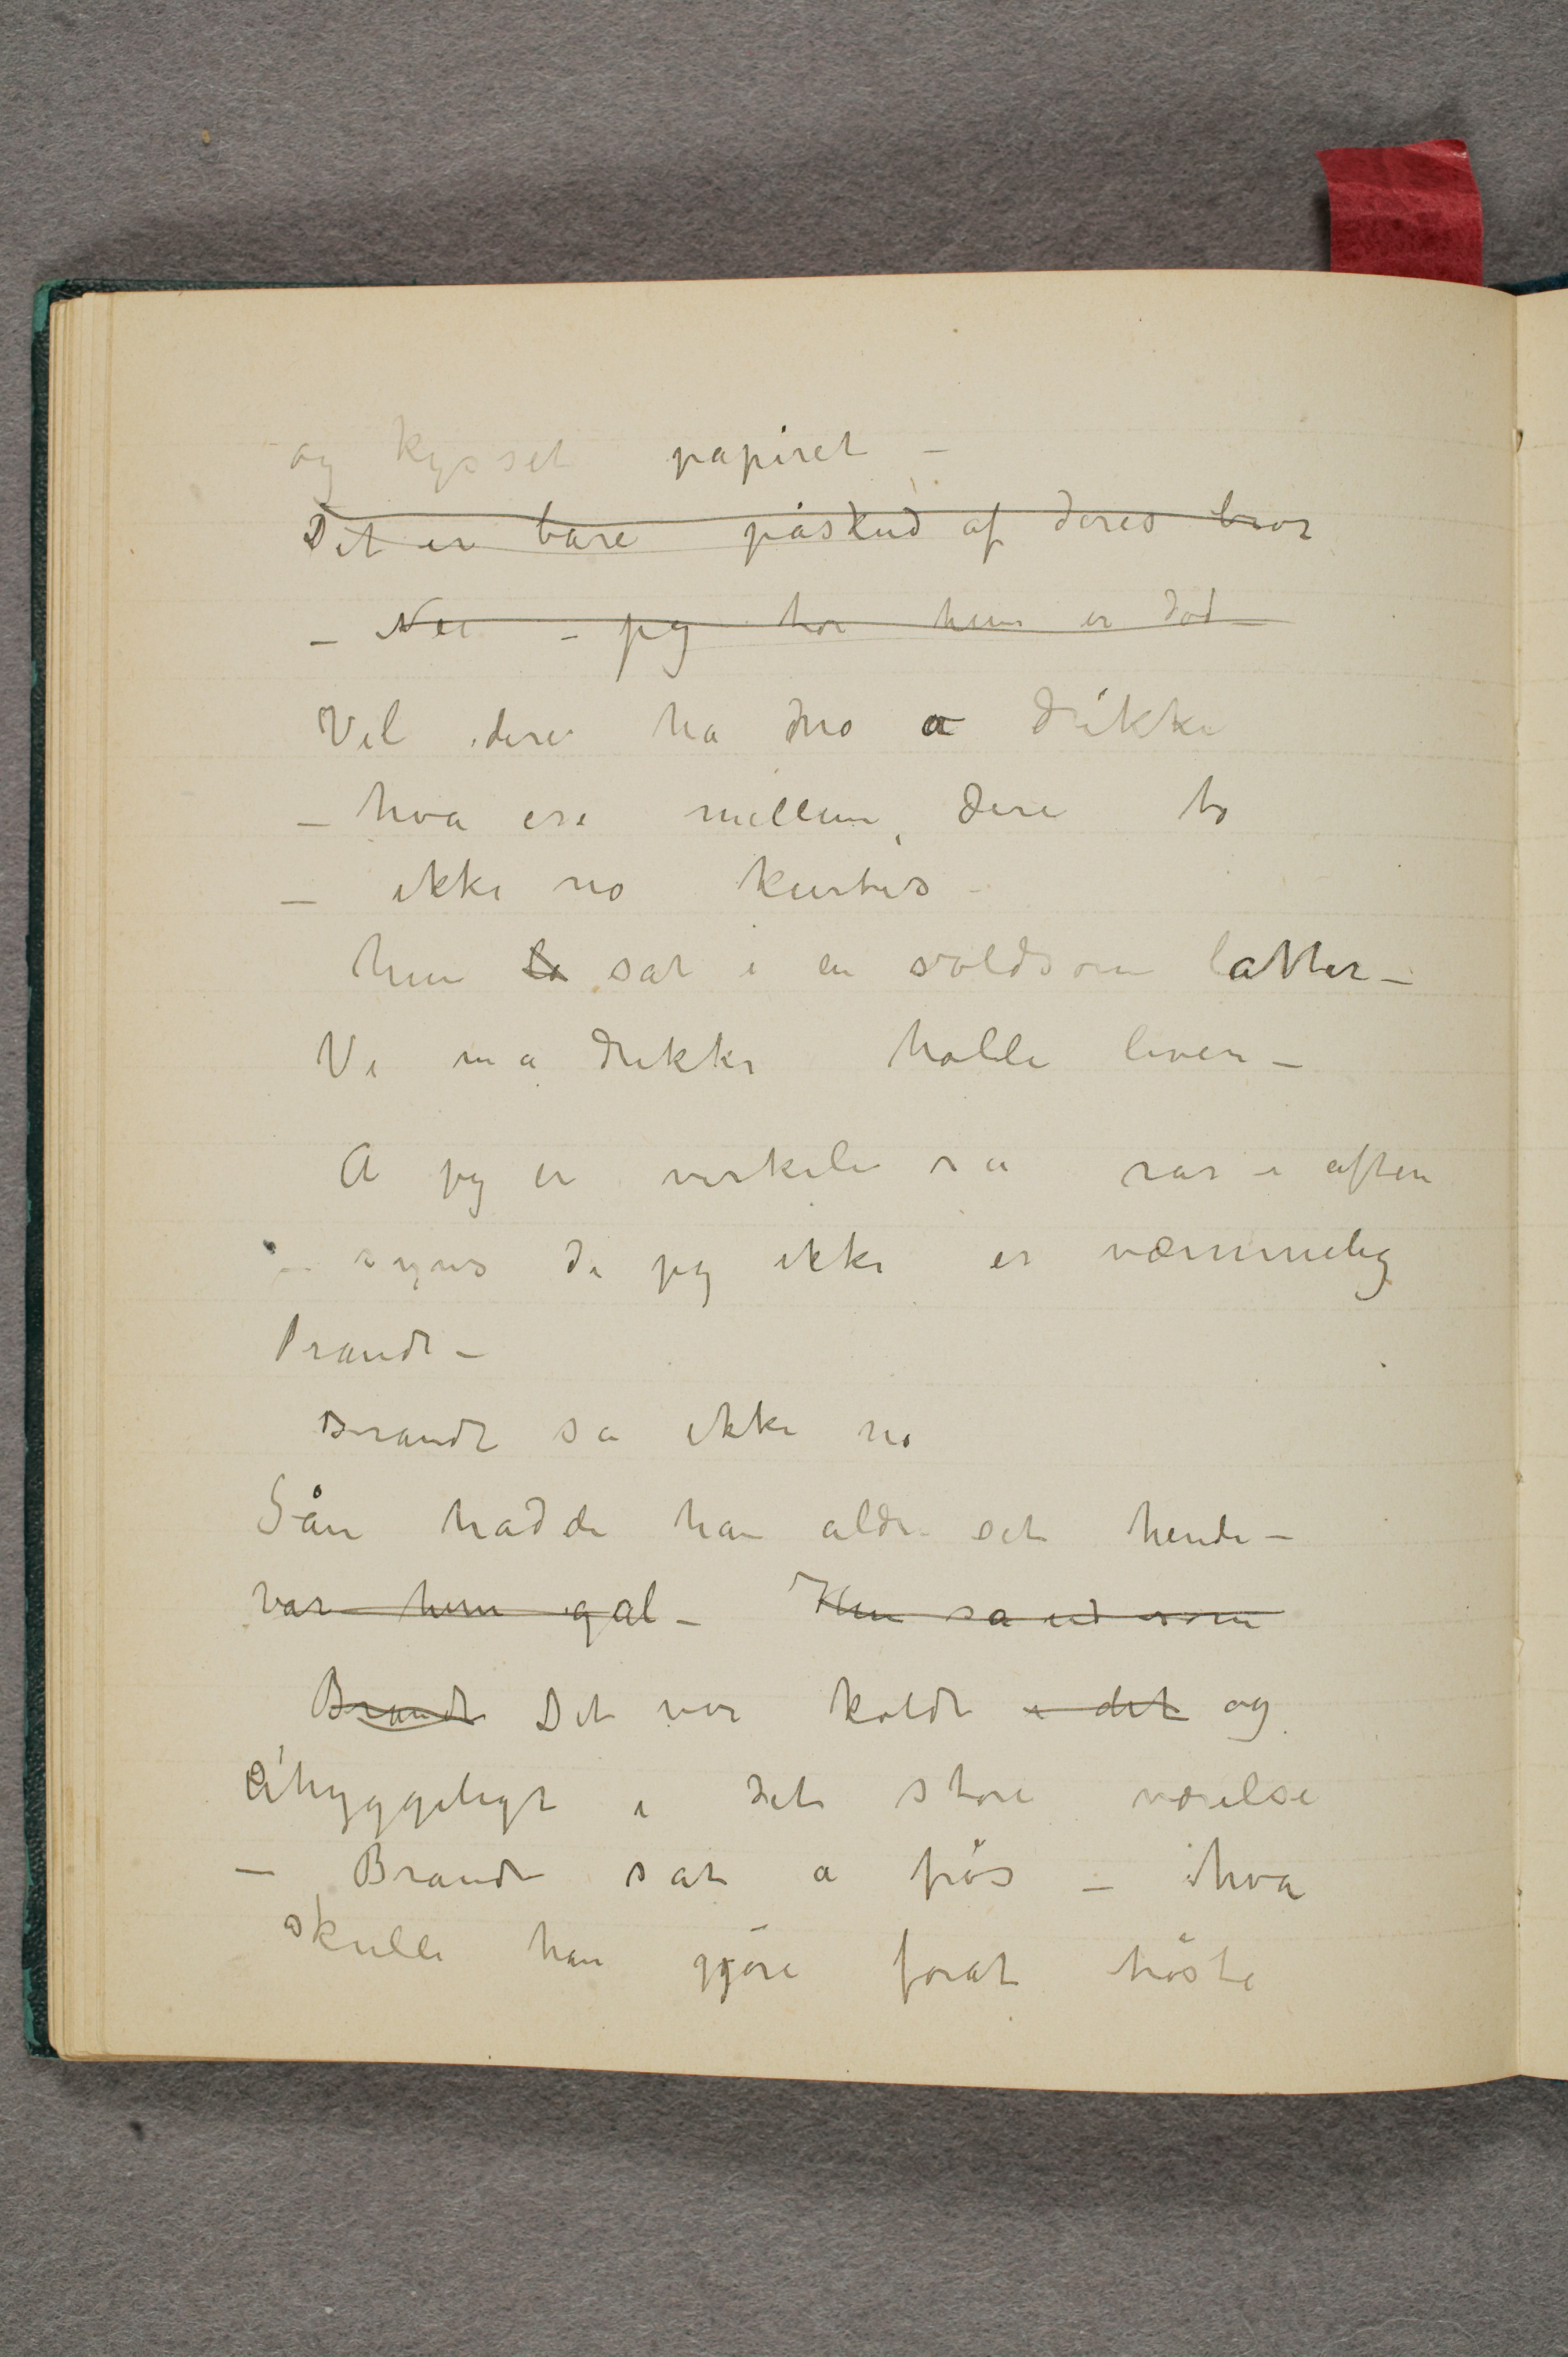 og kysset papiret –
Det er bare påskud af deres bror
– Nei – jeg tror hun er död –
Vil dere ha no a drikke
– hva ere mellem dere to
– ikke no kurtis –
hun lo sat i en voldsom latter –
Vi må drikke holde leven –
Å jeg er virkeli så rar i aften
– synes De jeg ikke er væmmelig
Brandt –
Brandt sa ikke no
Sån hadde han aldri set hende –
var hun gal – Hun så ud som
Brandt Det var koldt i det og
uhyggeligt i det store værelse
– Brandt sat å frös – hva
skulle han gjöre forat tröste